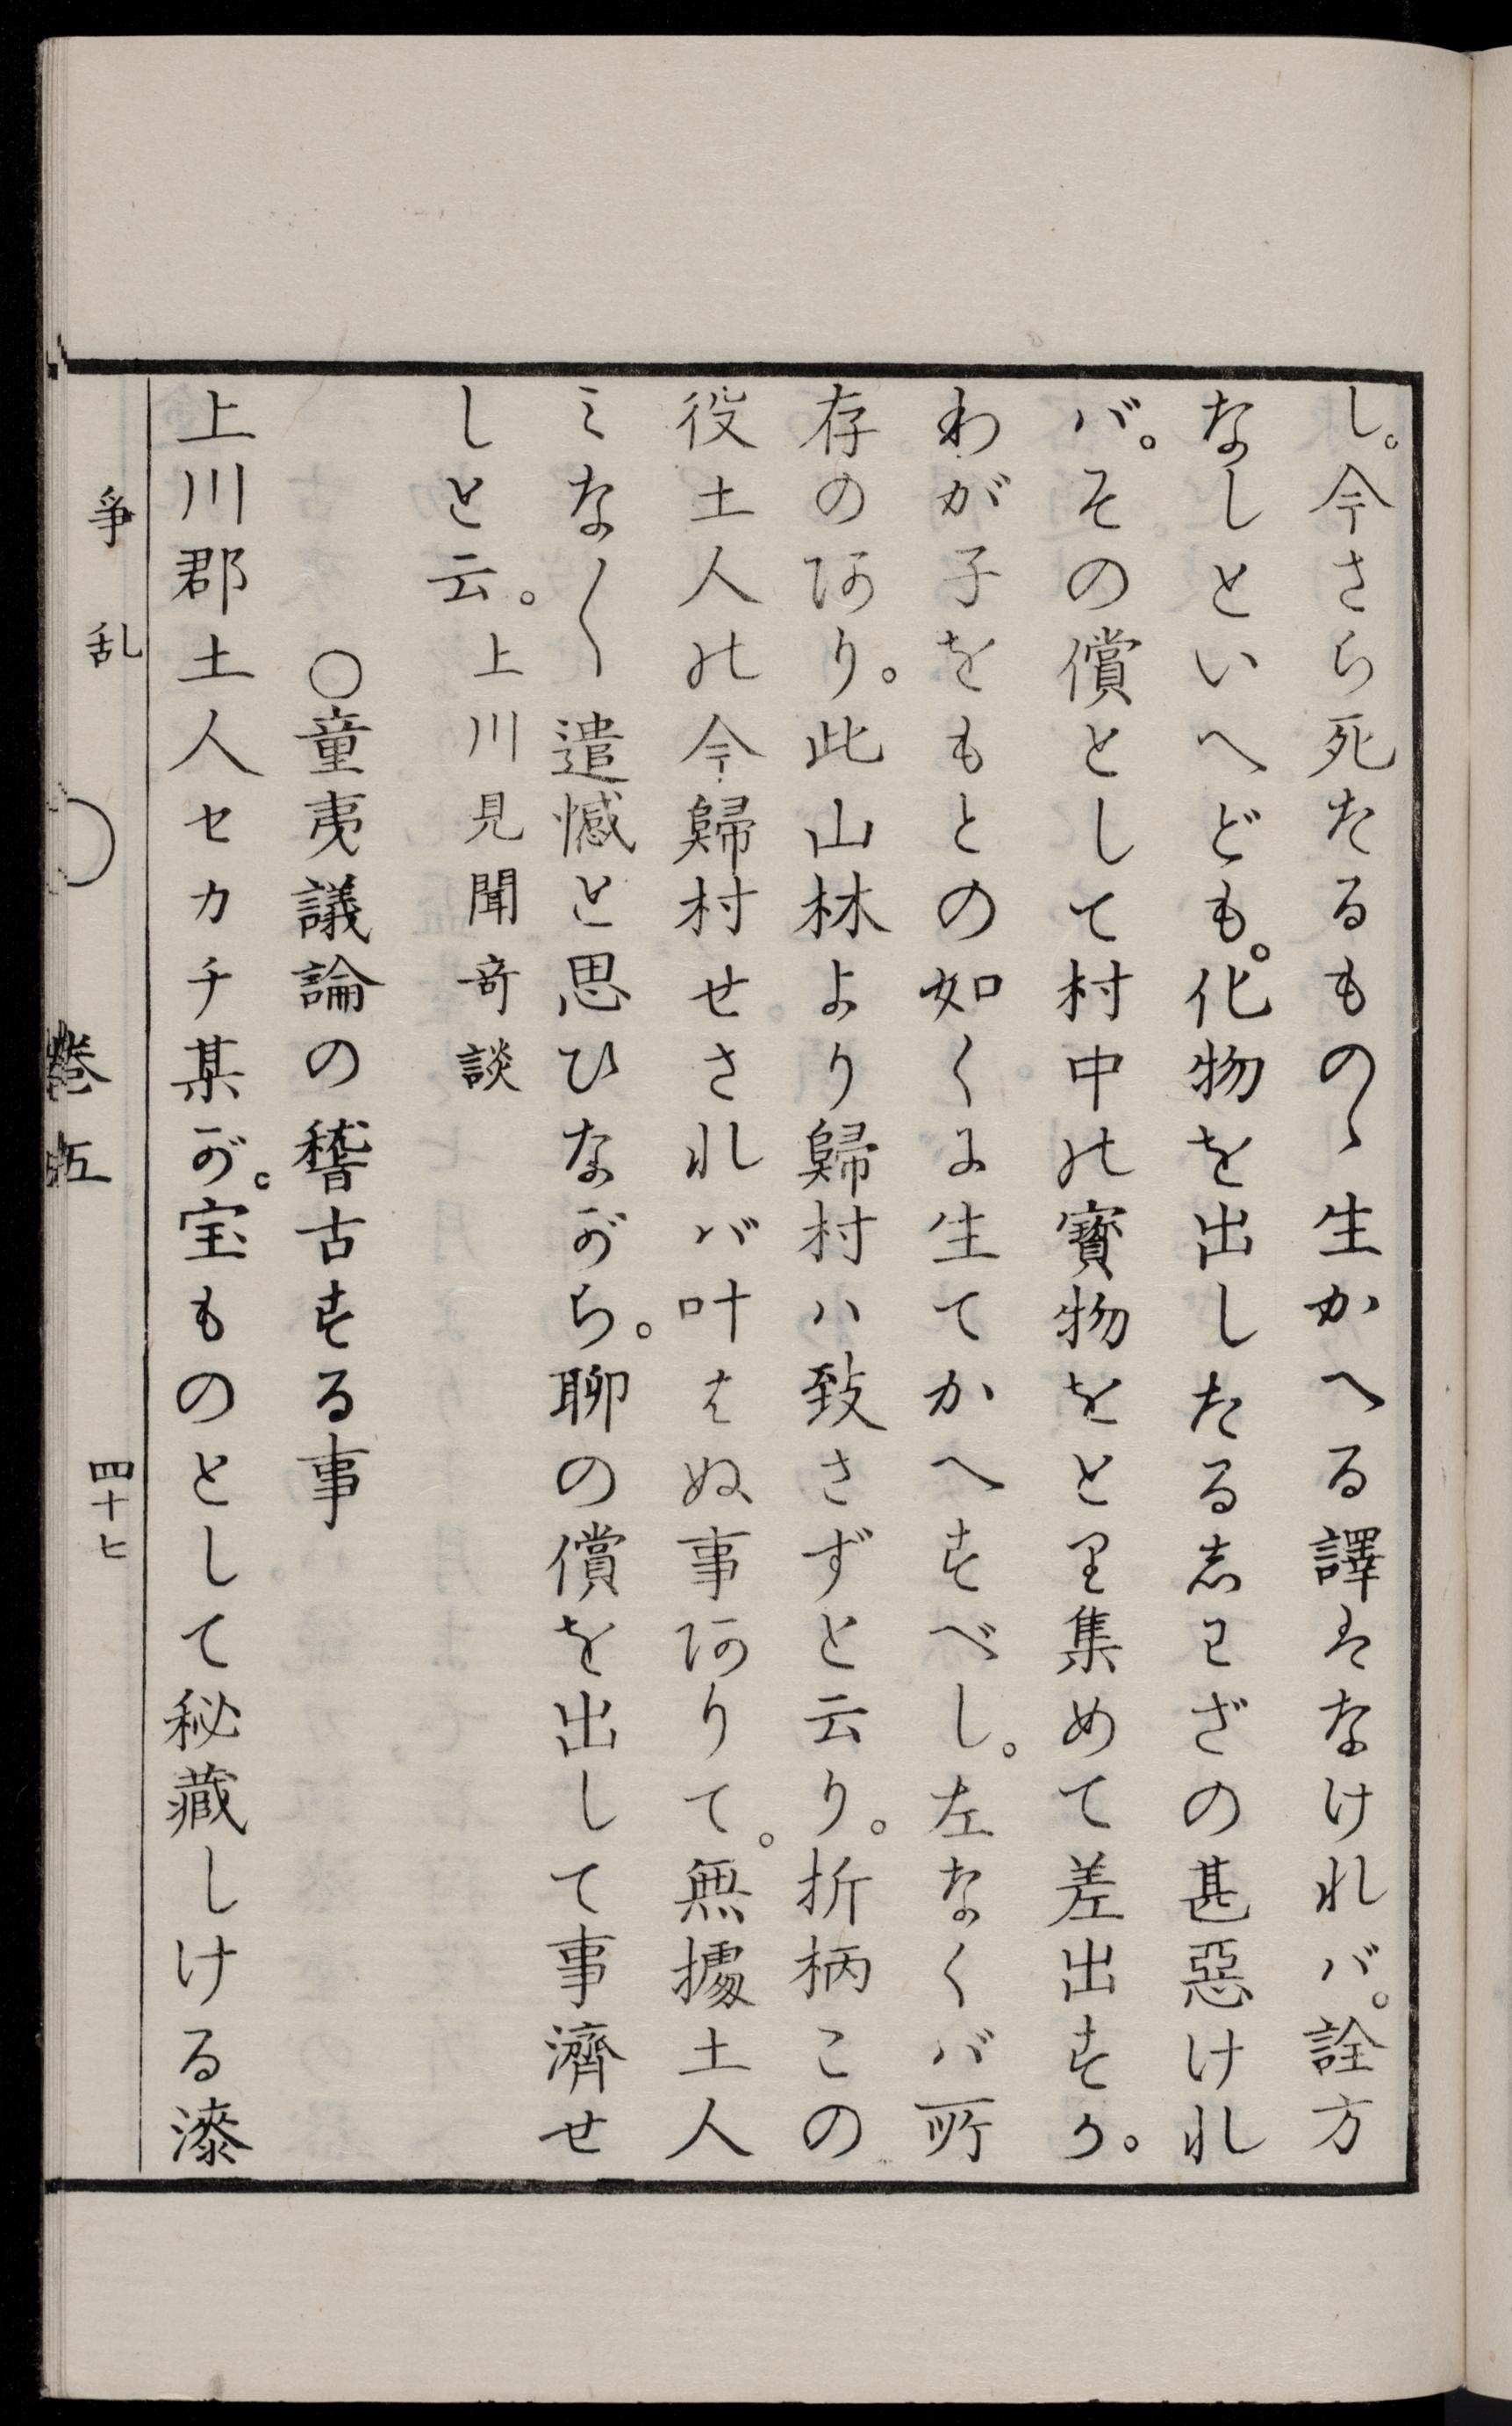 し。今さら死たるものゝ生かへる譯はなけれバ。詮方
なしといへども。化物を出したる志わざの甚惡けれ
バ。その償として村中の寳物をとり集めて差出すか。
わが子をもとの如くに生てかへすべし。左なくバ所
存のあり。此山林より歸村ハ致さずと云り。折柄この
役土人の今歸村せされバ叶はぬ事ありて。無據土人
ミな〱遺憾と思ひながら。聊の償を出して事濟せ
しと云。上川見聞奇談
○童夷議論の稽古する事
上川郡土人セカチ某が。宝ものとして秘藏しける漆
爭乱 巻五 四十七